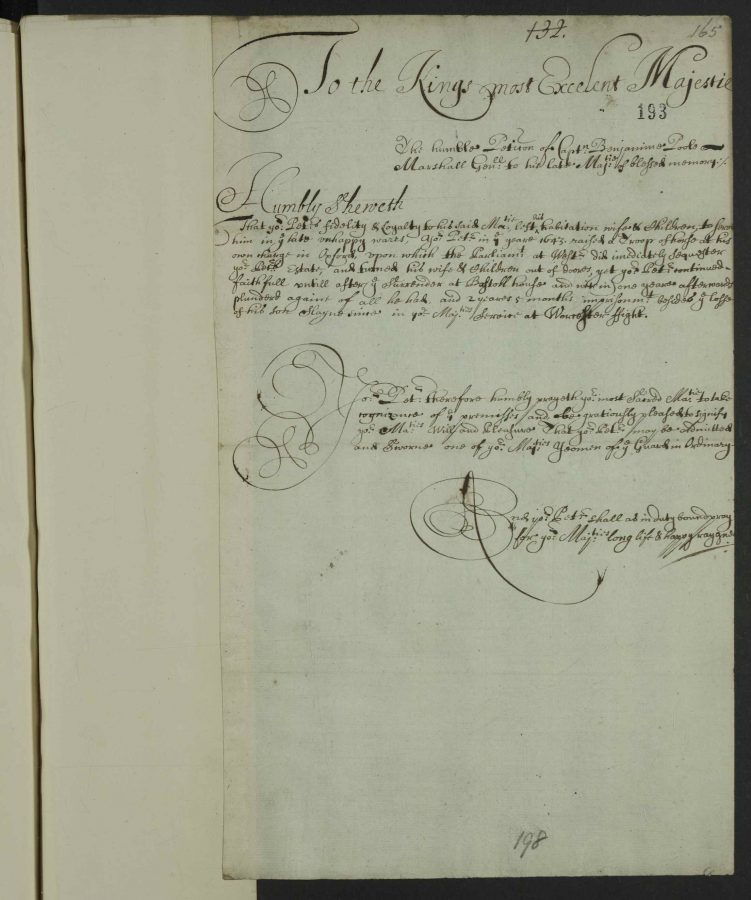 132.
165
To the Kings most Excelent Majestie
193
The humble Peticon of Captn. Benjamine Poole
Marshall Genll. to his late Matie of blessed memory
Humbly Sheweth
That yor. Petrs. fidelity & Loyalty to his said Matie, left habitation wife & Children, to serve
him in ye late unhappy warrs, Yor. Petr. in ye yeare 1643. raised a Troop of horse at his
own charge in Oxford, upon which the Parliamt. at Westr. did imediately Sequester
yor. Petrs. Estate, and turned his wife & Children out of dores, yet yor. Petr. continued
faithfull untill after ye Surrender at house and in one yeare afterwards
plunderd againe of all he had, and 2 yeares 5 months imprisonmt. besides ye losse
of his son Slayne since in yor. Majties. Service at Worcester ffight.
Yor. Petr. therefore humbly prayeth yor. most Sacred Matie to take
cognizance of ye premisses, and bee gratiously pleased to signify
yor. Maties. Will and Pleasure That yor. Petr. may be Admitted
and Sworne one of yor. Majties Yeomen of ye Guard in Ordinary
And yor. Petr. shall as in duty bound pray
for yor. Majties long life & happy raygne
198